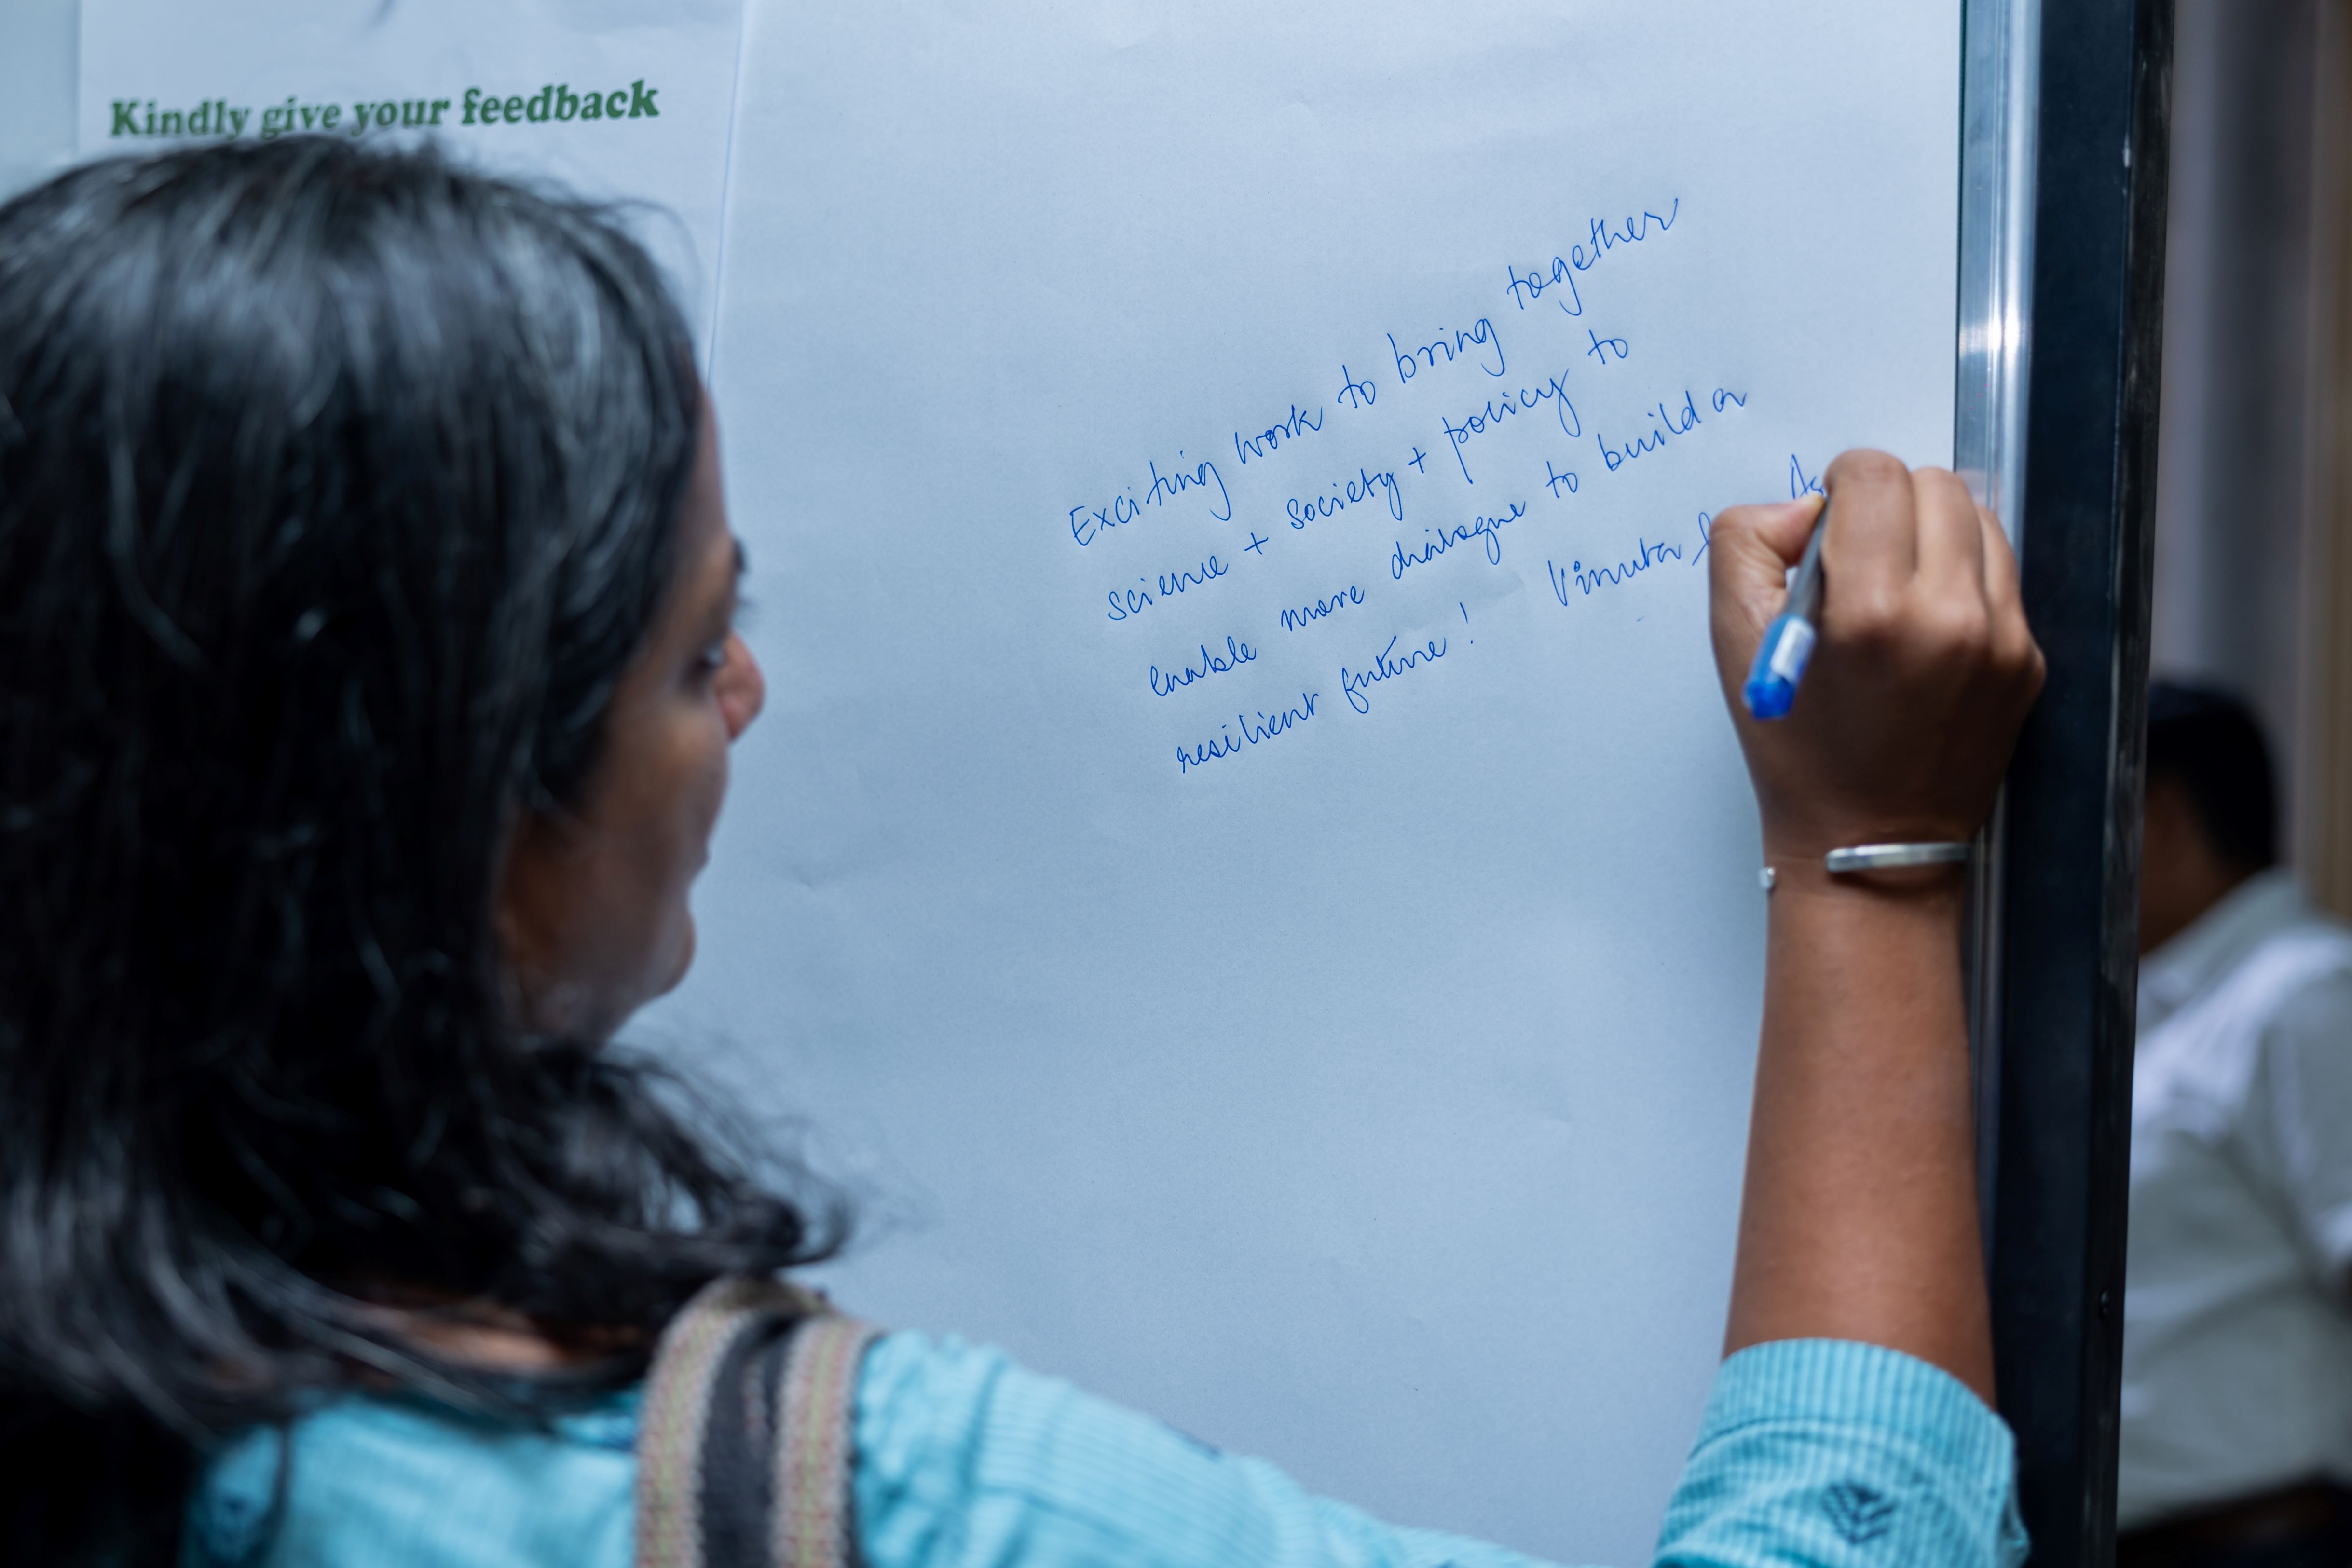 Kindly give your feedback
Exciting work to bring together
science + society + policy to
enable more dialogue to build a
resilient future! Vinuta